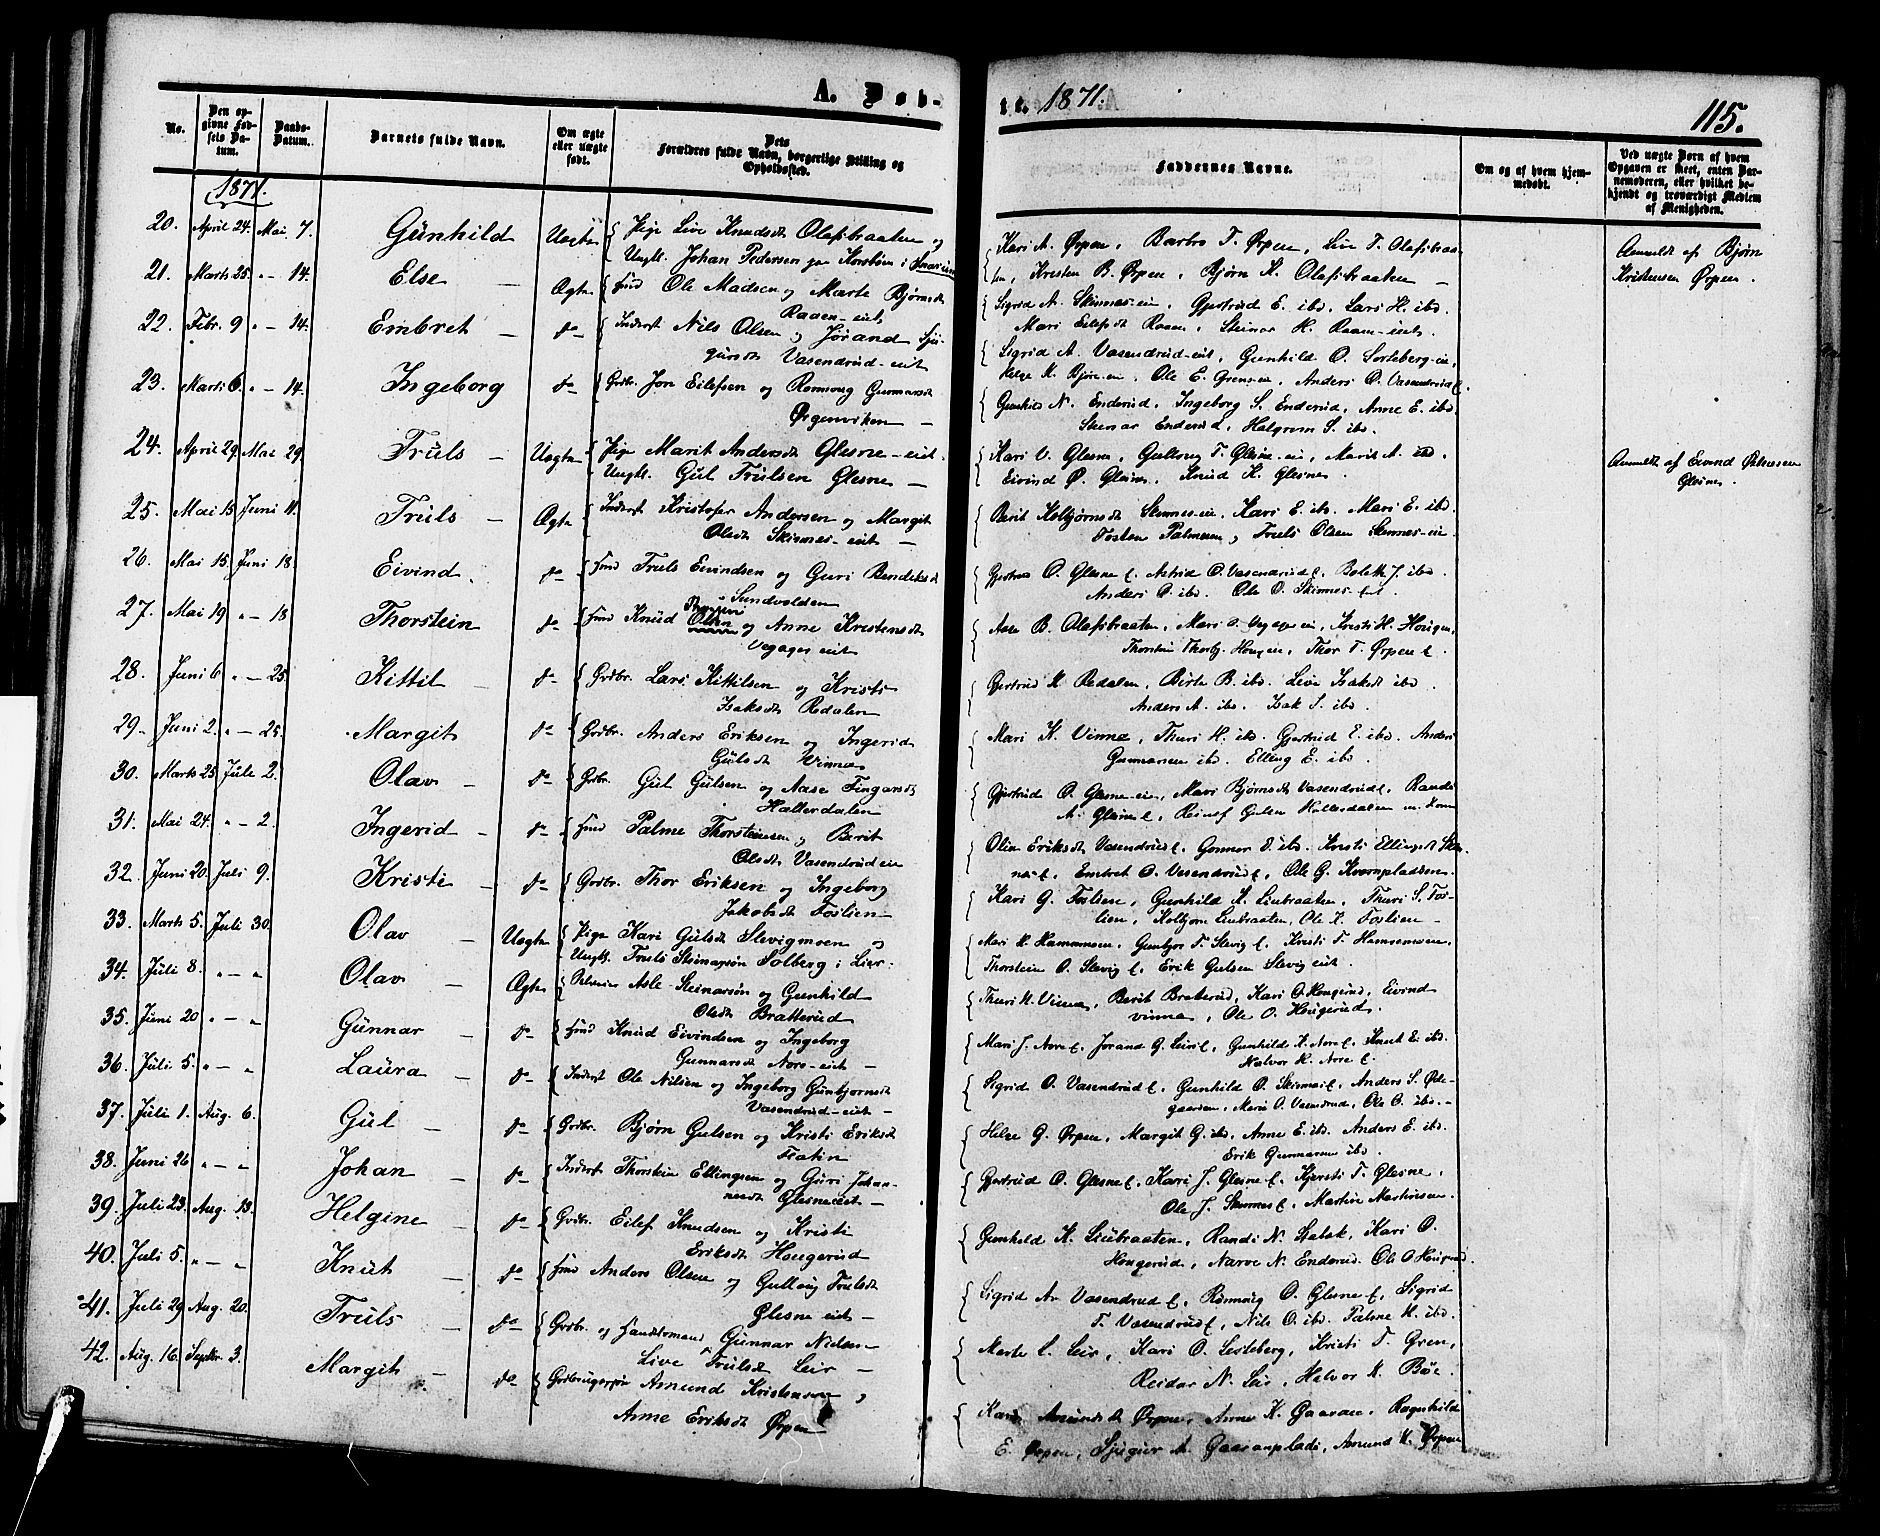 A. Døb-
te. 1871.
115.
No.
Den op-
givne Fød-
sels Da-
tum.
Daabs-
Datum.
Barnets fulde Navn.
Om ægte
eller uægte
født.
Dets
Forældres fulde Navn, borgerlige Stilling og
Opholdssted.
Faddernes Navne.
Om og af hvem hjem-
medøbt.
Ved uægte Børn af hvem
Opgaven er skeet, enten Bar-
nemoderen, eller hvilket be-
kjendt og troværdigt Medlem
af Menigheden.
1871.
20. April 24. Mai 7. Gunhild Uægte Pige Live Knudsdt Olafsbraaten og
Ungk. Johan Pedersen
Kari A. Ørpen, Barbro T. Ørpen, Live T. Olafsbraa-
ten, Kristen B. Ørpen, Bjørn K. Olafsbraaten
Anmeldt af Bjørn
Kristensen Ørpen.
21. Marts 25. " — 14. Else — Ægte Huusd Ole Madsen og Marte Bjørnsdt
Raaen-eiet
Sigrid A. Skinnes-eie, Gjertrud E. ibd. Lars H. ibd.
Mari Eilefsdt Raaen, Steinar H. Raaen-eiet.
22. Febr. 9 " — 14. Embret — do Inderst Nils Olsen og Jørand Sju-
gursdt Vasendrud-eiet
Sigrid A. Vasendrud-eiet, Gunhild O. Sorteberg-eie,
Helge K. Bjøre-eie, Ole E. Grensen, Anders O. Vasendrud
23. Marts 6. " — 14. Ingeborg do Grdbr. Jon Eilefsen og Rønnoug Gunnarsdt
Ørgenviken —
Gunhild N. Enderud, Ingeborg S. Enderud, Anne E. ibd.
Steinar Enderud, Halgrim S. ibd.
24. April 29. Mai 29. Truls — Uægte Pige Marit Andersdt Glesne-eiet.
Ungk. Gul Trulsen Glesne —
Kari O. Glesne, Gulloug T. Glesne-eie, Marit A. ibd
Eivind Ø. Glesne, Knud K. Glesne
Anmeldt af Eivind
Glesne.
25. Mai 15. Juni 11. Truls — Ægte Inderst Kristofer Andersen og Margit
Olsdt Skinnes-eiet —
Berit Kolbjørnsdt Skinnes-eie, Kari E. ibd. Mari E. ibd.
Tosten Palmesen, Truls Olsen Skinnes-eie
26. Mai 15. Juni 18. Eivind. do Huusd Truls Eivindsen og Guri Bendiksdt
Sundvolden
O. Glesne, Astrid O. Vasendrud, Bolette J. ibd.
Anders O. ibd. Ole O. Skinnes-eiet
27. Mai 19 " — 18 Thorstein do Huusd Knud Olsen og Anne Kristensdt
eiet
Aase B. Olafsbraaten, Mari O. Kristi H. Hougen,
Thorstein Hougen, Thor T. Ørpen
28. Juni 6 " — 25. Kittil — do Grdbr. Lars Kittilsen og Kristi
Isaksdt Redalen
Gjertrud K Redalen, Birte B. ibd. Live Isaksdt ibd.
Anders A. ibd. Isak S. ibd.
29. Juni 2. " — 25. Margit do Grdbr. Anders Eriksen og Ingerid
Gulsdt Vinne
Mari K. Vinne, Thuri H. ibd. Gjertrud E. ibd. Anders
Gunnarsen ibd. Elling E. ibd.
30. Marts 25 Juli 2. Olav — do Grdbr. Gul Gulsen og Aase Fingarsdt
Hallerdalen
Gjertrud O. Glesne-eie, Mari Bjørnsdt Vasendrud, Randi
A. Glesne, Gulsen Hallerdalen
31. Mai 24. " — 2. Ingerid — do Huusd Palme Thorsteinsen og Berit
Olsdt Vasendrud eie
Olia Eriksdt Vasendrud, Gunnor E. ibd. Kristi Ellingsdt Skin-
nes, Embret O. Vasendrud, Ole G. Kvernpladsen
32. Juni 20. Juli 9. Kristi — do Grdbr. Thor Eriksen og Ingeborg
Jakobsdt Foslien —
Kari G. Foslien, Gunhild K. Liubraaten, Thuri S. Fos-
lien, Kolbjørn Liubraaten, Ole K. Foslien —
33. Marts 5. Juli 30. Olav — Uægte Pige Kari Gulsdt Slevigmoen og
Ungk. Truls Steinarsøn Solberg i Lier.
Mari K. Kristi T.
Thorstein O. Slevig, Erik Gulsen Slevig eiet.
34. Juli 8. " — " Olav — Ægte Asle Steinarsøn og Gunhild
Olsdt Bratterud
Thuri H. Vinne, Berit Braterud, Kari O. Hougerud, Eivind
Vinne, Ole O. Hougerud.
35. Juni 20 " — " Gunnar — do Huusd Knud Eivindsen og Ingeborg
Gunnarsdt Nore-eiet —
Mari J. Nore, Jørand G. Gunhild K. Nore, Knut E. ibd.
Halvor K. Nore
36. Juli 5. " — " Laura — do Inderst Ole Nilsen og Ingeborg Gunbjørnsdt
Vasendrud-eiet —
Sigrid O. Vasendrud, Gunhild O. Skinnes, Anders S. Øde-
gaarden, Marie O. Vasendrud, Ole O. ibd. —
37. Juli 1. Aug. 6. Gul — do Grdbr. Bjørn Gulsen og Kristi Eriksdt
Helge G. Ørpen, Margit G. ibd., Anne E. ibd. Anders E. ibd.
Erik Gunnarsen ibd.
38. Juni 26 " — " Johan — do Inderst Thorstein Ellingsen og Guri Johan-
nesdt Glesne-eiet —
Gjertrud O. Glesne, Kari J. Glesne, Kjersti T. Glesne,
Ole J. Skinnes, Martin Martinsen
39. Juli 23. Aug. 13. Helgine — do Grdbr. Eilef Knudsen og Kristi
Eriksdt Hougerud
Gunhild K. Liubraaten, Randi N. Kari O.
Hougerud, Narve N. Enderud, Ole O Hougerud
40. Juli 5. " — " Knut — do Huusd Anders Olsen og Gulloug Trulsdt
Glesne eiet —
Sigrid A. Vasendrud, Rønnoug O. Glesne, Sigrid
T. Vasendrud, Nils O. ibd. Palme H. ibd.
41. Juli 29 Aug. 20. Truls — do Grdbr. og Handelsmand Gunnar Nielsen
Live Trulsdt Leir —
Marte L. Leir, Kari O. Kristi T. Gren,
Reidar N. Leir, Halvor K. Bøe
42. Aug. 16. Septbr. 3. Margit — do Amund Kristensen og
Anne Eriksdt Ørpen
Kari Amundsdt Ørpen, Anne K. Gaaraae, Ragnhild
E. Ørpen, Sjugur A. Amund K. Ørpen